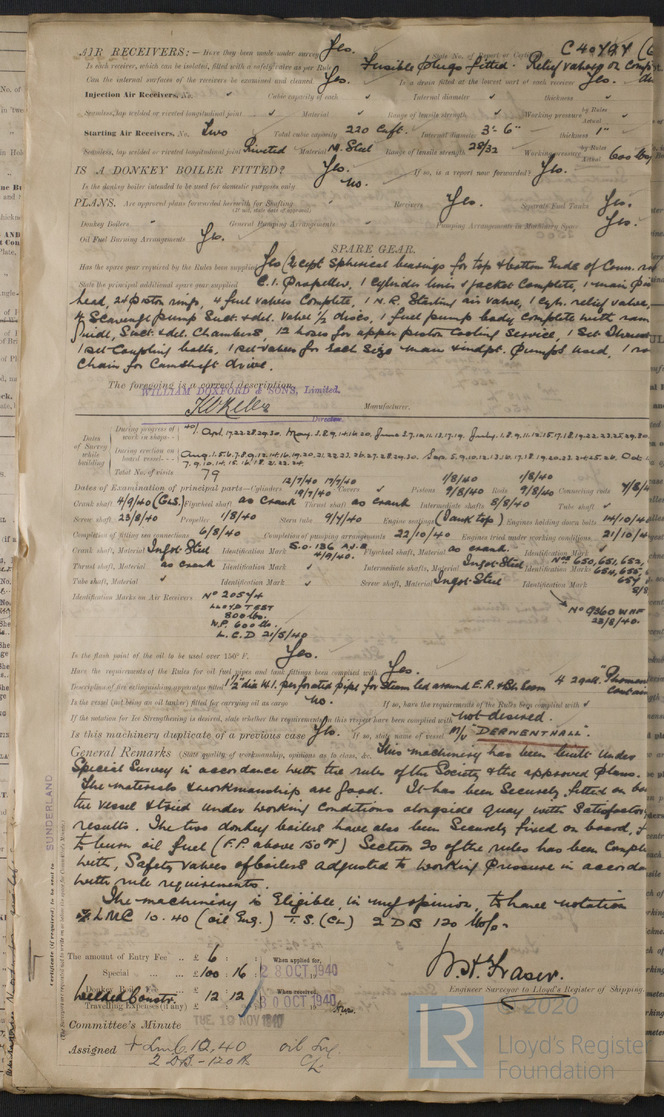 AIR RECEIVERS:— Have they been made under survey Yes. State No. of Report or Certif. C 40727
Is each receiver, which can be isolated, fitted with a safety valve as per Rule Fusible plugs fitted. Relief valves on Comp
Can the internal surfaces of the receivers be examined and cleaned Yes. Is a drain fitted at the lowest part of each receiver Yes.
Injection Air Receivers, No. Cubic capacity of each Internal diameter thickness
Seamless, lap welded or riveted longitudinal joint Material Range of tensile strength Working pressure by Rules Actual
Starting Air Receivers, No. Two Total cubic capacity 220 Cuft. Internal diameter 3'-6" thickness 1"
Seamless, lap welded or riveted longitudinal joint Riveted Material M. Steel Range of tensile strength 28/32 Working pressure by Rules Actual 600 lbs
IS A DONKEY BOILER FITTED? Yes. If so, is a report now forwarded? Yes.
Is the donkey boiler intended to be used for domestic purposes only No.
PLANS. Are approved plans forwarded herewith for Shafting Receivers Yes. Separate Fuel Tanks Yes.
(If not, state date of approval)
Donkey Boilers General Pumping Arrangements Pumping Arrangements in Machinery Space Yes.
Oil Fuel Burning Arrangements Yes.
SPARE GEAR.
Has the spare gear required by the Rules been supplied Yes (2 Spherical bearings for top & bottom Ends of Conn.
State the principal additional spare gear supplied C.I. Propeller, 1 Cylinder liner & jacket Complete, 1 main
head, 24 piston rings, 4 fuel valves Complete, 1 N.R. Starting air valve, 1 Cyl. relief valve,
Scavenge pump Suct. & del. valve discs, 1 fuel pump body complete with ram
Suct. & del. Chambers, 12 hoses for upper piston Cooling Service, 1 Set
1 set Coupling bolts, 1 set valves for Each Size main & indpt. Pumps used, 1
Chain for Camshaft drive.
The foregoing is a correct description,
WILLIAM DOXFORD & SONS, Limited.
Manufacturer.
Director.
Dates of Survey while building
During progress of work in shops - - 40/ Apl. 17.22.28.29.30. May. 3.8.9.14.16.20. June 3.7.10.11.12.17.19. July. 1.8.9.11.12.15.17.18.19.22.23.25.29.30
During erection on board vessel - - - Aug. 1.5.6.7.8.9.12.14.16.19.20.21.22.23.26.27.28.29.30. Sep. 5.9.10.12.13.16.17.18.19.20.23.24.25.26. Oct.
7.9.10.14.15.16.18.21.22.24.
Total No. of visits 79
Dates of Examination of principal parts—Cylinders 12/7/40 17/9/40 19/7/40 Covers Pistons 1/8/40 9/8/40 Rods 1/8/40 9/8/40 Connecting rods 7/8/4
Crank shaft 4/9/40 (Gls.) Flywheel shaft as crank Thrust shaft as crank Intermediate shafts 5/8/40 Tube shaft
Screw shaft 23/8/40 Propeller 1/8/40 Stern tube 9/7/40 Engine seatings (Tank top) Engines holding down bolts 14/10/4
Completion of fitting sea connections 6/8/40 Completion of pumping arrangements 22/10/40 Engines tried under working conditions 21/10/4
Crank shaft, Material Ingot Steel Identification Mark S.O. 136 4/9/40. Flywheel shaft, Material as crank. Identification Mark
Thrust shaft, Material as crank Identification Mark Intermediate shafts, Material Ingot Steel Identification Marks Nos 650, 651, 652,
Tube shaft, Material Identification Mark Screw shaft, Material Ingot Steel Identification Mark
Identification Marks on Air Receivers No 2054/4
LLOYD TEST
800 lbs.
W.P. 600 lb.
L.C.D 21/5/40
No 9360 WHF
23/8/40.
Is the flash point of the oil to be used over 150° F. Yes.
Have the requirements of the Rules for oil fuel pipes and tank fittings been complied with Yes.
Description of fire extinguishing apparatus fitted 1½" dia W.I. perforated pipe for Steam led around E.R. & Blr. Room 4 2 gall.
Is the vessel (not being an oil tanker) fitted for carrying oil as cargo No. If so, have the requirements of the Rules been complied with
If the notation for Ice Strengthening is desired, state whether the requirements in this respect have been complied with not desired.
Is this machinery duplicate of a previous case Yes. If so, state name of vessel M/V "DERWENTHALL".
General Remarks (State quality of workmanship, opinions as to class, &c. This machinery has been built under
Special Survey in accordance with the rules of the Society & the approved plans.
The materials & workmanship are good. It has been securely fitted on
the vessel & tried under working conditions alongside quay with Satisfactory
results. The two donkey boilers have also been Securely fixed on board,
to burn oil fuel (F.P. above 150°F) Section 20 of the rules has been
with, Safety valves of boilers adjusted to working Pressure in
with rule requirements.
The machinery is Eligible, in my opinion, to have notation
LMC 10.40 (oil Eng.) T.S. (CL) 2 DB 120 lbs.
SUNDERLAND
Certificate (if required) to be sent to
The amount of Entry Fee .. £ 6 :
Special ... £ 100 : 16 :
Donkey Boiler Fee
Welded Constr. £ 12 : 12
Travelling Expenses (if any) £
When applied for,
28 OCT 1940
When received,
30 OCT 1940
W.H. Fraser.
Engineer Surveyor to Lloyd's Register of Shipping.
Committee's Minute
TUE. 19 NOV 1940
Assigned + Lmc 10,40 oil Eng
2 DB - 120 lb CL
© 2020
LR
Lloyd's Register
Foundation